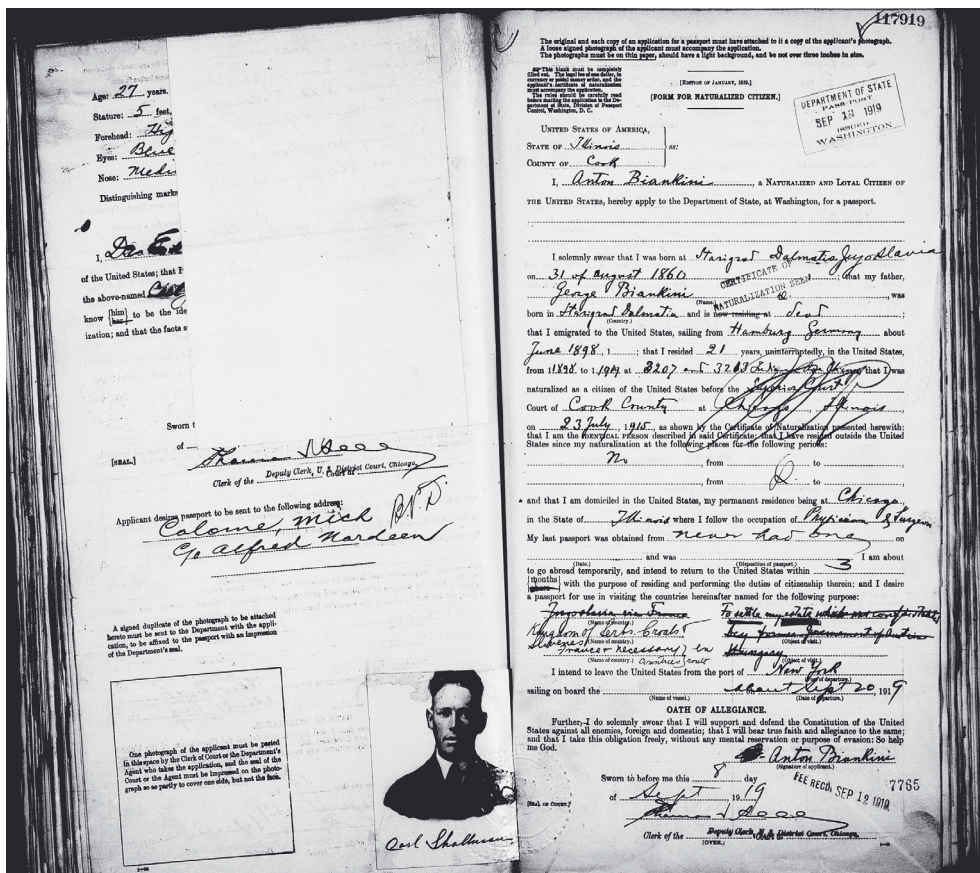 Age: 27 years.
Stature: 5 feet,
Forehead: Hig
Eyes: Blue
Nose: Medi
Distinguishing marks
I,
of the United States; that I
the above-named
know {him} {her} to be the ide
ization; and that the facts s
Sworn t
of
[SEAL.]
Clerk of the Deputy Clerk, U. S. District Court, Chicago.
Applicant desires passport to be sent to the following address:
Colome, Mich
c/o Alfred Nordeen
A signed duplicate of the photograph to be attached
hereto must be sent to the Department with the appli-
cation, to be affixed to the passport with an impression
of the Department's seal.
One photograph of the applicant must be pasted
in this space by the Clerk of Court or the Department's
Agent who takes the application, and the seal of the
Court or the Agent must be impressed on the photo-
graph so as partly to cover one side, but not the face.
Carl
117919
The original and each copy of an application for a passport must have attached to it a copy of the applicant's photograph.
A loose signed photograph of the applicant must accompany the application.
The photographs must be on thin paper, should have a light background, and be not over three inches in size.
This blank must be completely
filled out. The legal fee of one dollar, in
currency or postal money order, and the
applicant's certificate of naturalization
must accompany the application.
The rules should be carefully read
before mailing the application to the De-
partment of State, Division of Passport
Control, Washington, D. C.
[EDITION OF JANUARY, 1919.]
[FORM FOR NATURALIZED CITIZEN.]
DEPARTMENT OF STATE
PASSPORT
SEP 13 1919
ISSUED
WASHINGTON
UNITED STATES OF AMERICA,
STATE OF Illinois
ss:
COUNTY OF Cook
I, Anton Biankini, a NATURALIZED AND LOYAL CITIZEN OF
THE UNITED STATES, hereby apply to the Department of State, at Washington, for a passport.
I solemnly swear that I was born at Starigrad Dalmatia Jugoslavia
on 31 of august 1860; that my father,
CERTIFICATE OF
NATURALIZATION SEEN
George Biankini, was
(Name.)
born in Starigrad Dalmatia and is now residing at dead
(Country.)
that I emigrated to the United States, sailing from Hamburg Germany about
June 1898, 1; that I resided 21 years, uninterruptedly, in the United States,
from 1898 to 1919 at 3207 and 3243 that I was
naturalized as a citizen of the United States before the Superior Court
Court of Cook County at Chicago, Illinois
on 23 July, 1915, as shown by the Certificate of Naturalization presented herewith;
that I am the IDENTICAL PERSON described in said Certificate; that I have resided outside the United
States since my naturalization at the following places for the following periods:
No, from to
, from to
and that I am domiciled in the United States, my permanent residence being at Chicago
in the State of Illinois where I follow the occupation of Physician & Surgeon
My last passport was obtained from never had one on
and was I am about
(Date.) (Disposition of passport.)
to go abroad temporarily, and intend to return to the United States within 3
{months} {years} with the purpose of residing and performing the duties of citizenship therein; and I desire
a passport for use in visiting the countries hereinafter named for the following purpose:
Jugoslavia via France To settle my estate which was
(Name of country.) (Object of visit.)
Kingdom of Serbs Croats & by former Government of Austria
Slovenes
(Name of country.) (Object of visit.)
France & necessary en Hungary
(Name of country.) countries route (Object of visit.)
I intend to leave the United States from the port of New York
(Port of departure.)
sailing on board the about Sept 20, 1919
(Name of vessel.) (Date of departure.)
OATH OF ALLEGIANCE.
Further, I do solemnly swear that I will support and defend the Constitution of the United
States against all enemies, foreign and domestic; that I will bear true faith and allegiance to the same;
and that I take this obligation freely, without any mental reservation or purpose of evasion: So help
me God.
Anton Biankini
(Signature of applicant.)
Sworn to before me this 8 day
FEE RECD, SEP 12 1919 7765
of Sept 1919
[SEAL OF COURT.]
Clerk of the Deputy Clerk, U. S. District Court, Chicago.
(OVER.)